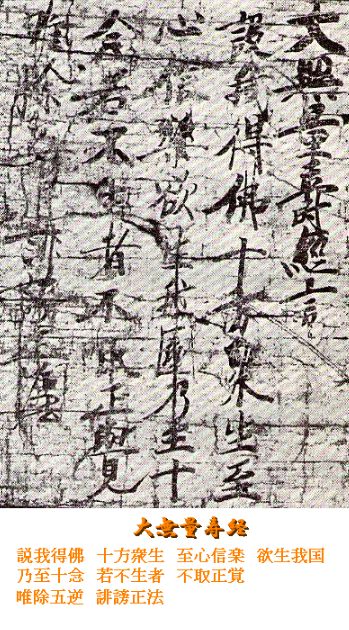 大無量壽經
設我得佛十方衆生至
心信樂欲生我國乃至十
念若不生者不取正覺
唯除五逆誹謗正法
大無量寿経
説我得佛 十方衆生 至心信楽 欲生我国
乃至十念 若不生者 不取正覚
唯除五逆 誹謗正法